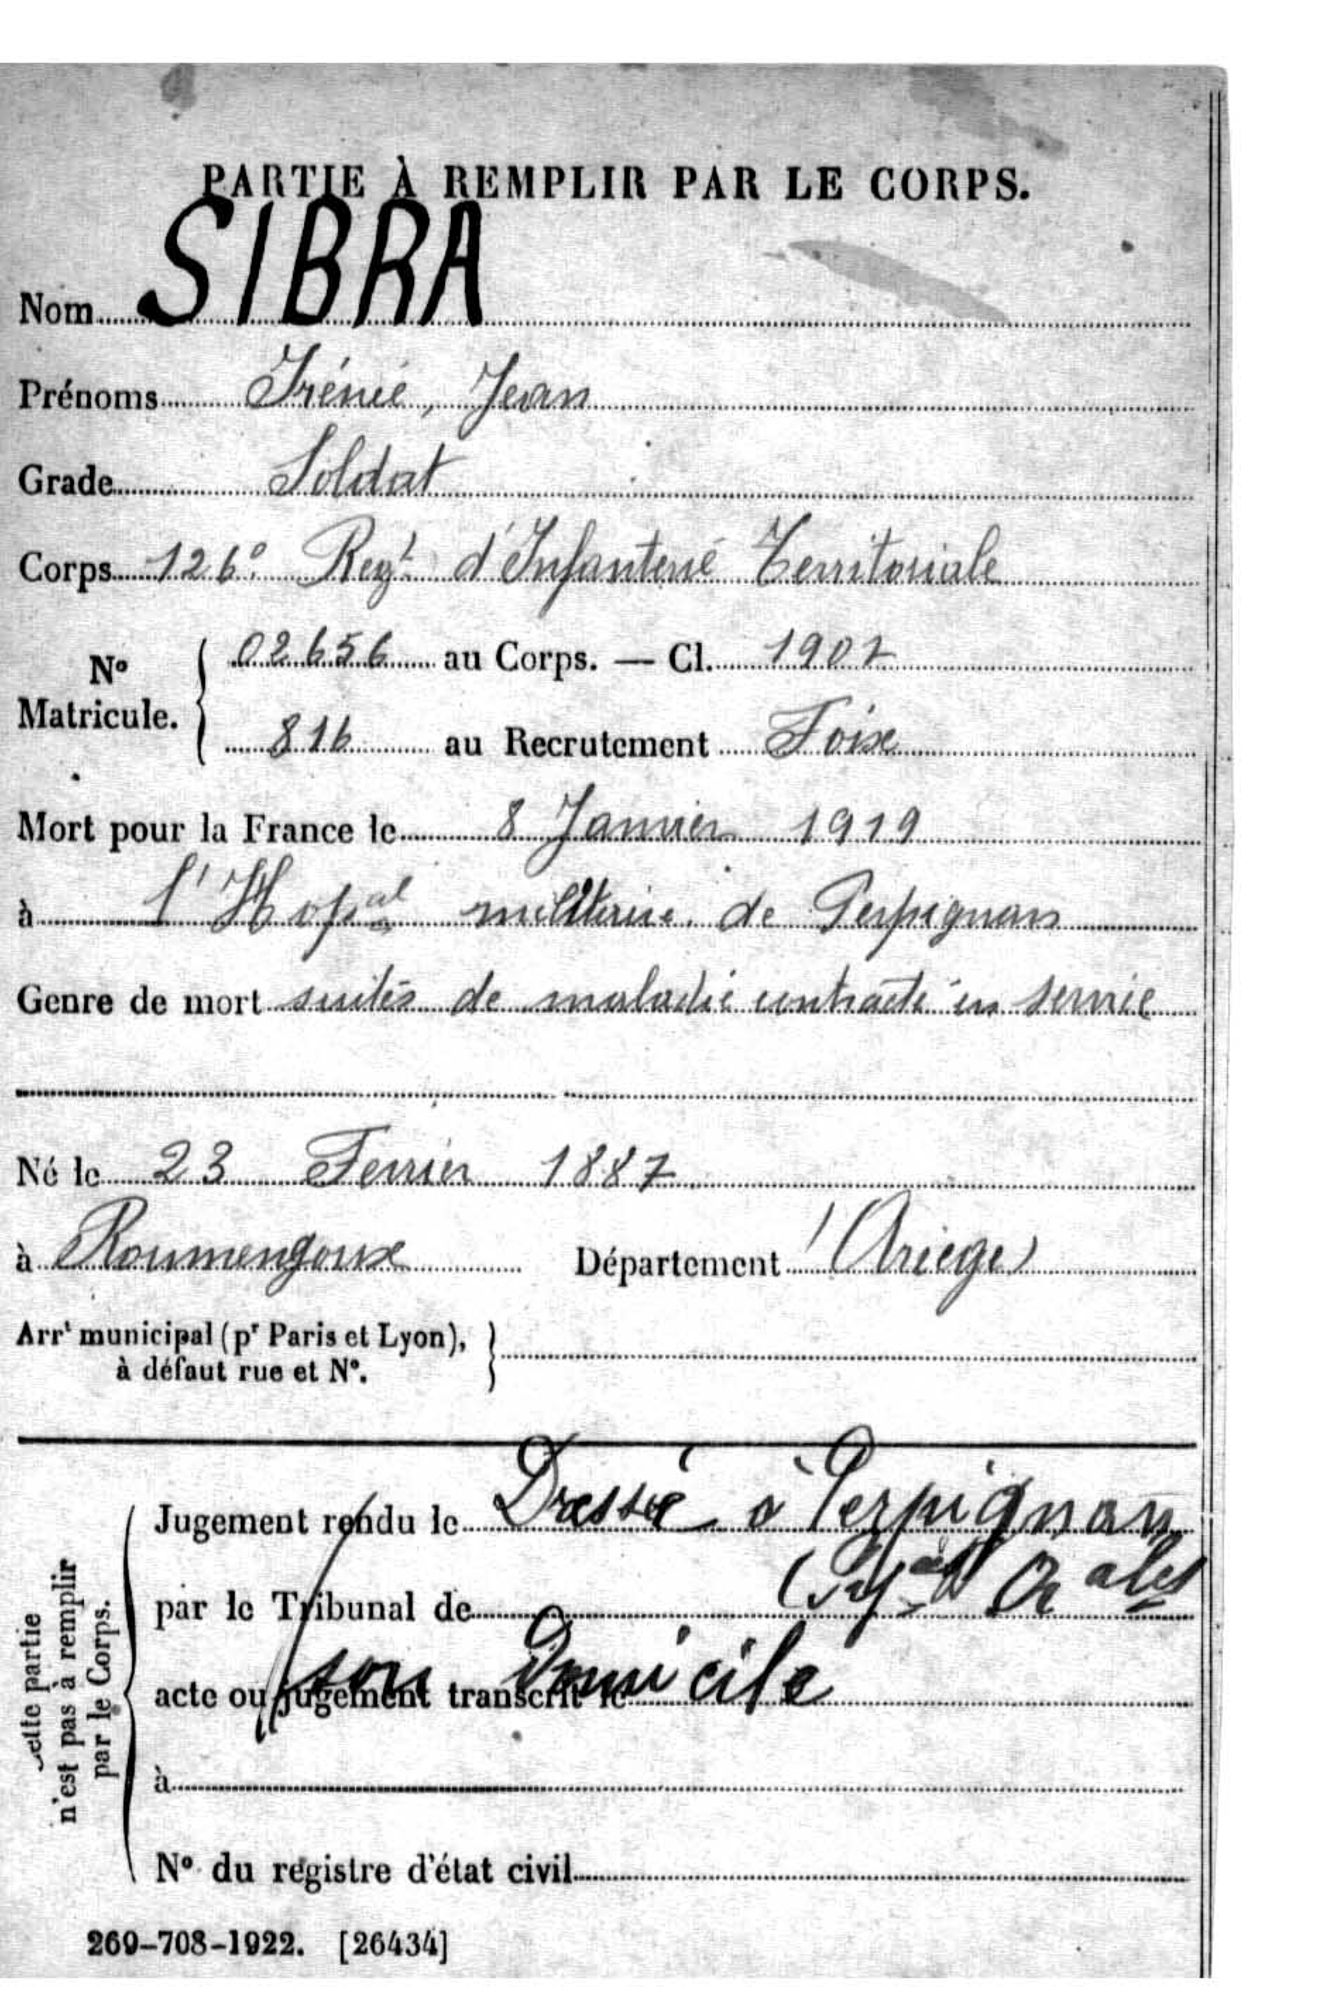 PARTIE À REMPLIR PAR LE CORPS.
Nom SIBRA
Prénoms Irénée, Jean
Grade Soldat
Corps 126e Regt d'Infanterie Territoriale
N° Matricule. { 02656 au Corps. — Cl. 1907
816 au Recrutement Foix
Mort pour la France le 8 Janvier 1919
à l'Hopal militaire de Perpignan
Genre de mort suites de maladie contracté en service
Né le 23 Fevrier 1887
à Roumengoux Département (Ariège)
Arrt municipal (pr Paris et Lyon),
à défaut rue et N°.
Cette partie
n'est pas à remplir
par le Corps.
Jugement rendu le Dressé à Perpignan
par le Tribunal de
acte ou jugement transcrit le son Domicile
à
N° du registre d'état civil
269-708-1922. [26434]